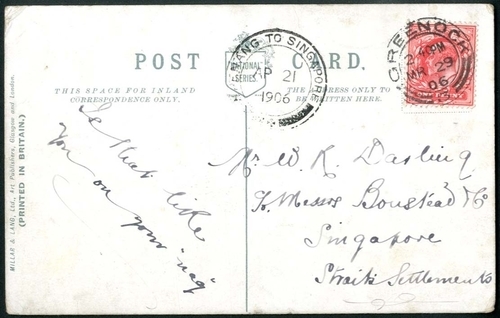 POST CARD.
NATIONAL SERIES
THIS SPACE FOR INLAND
CORRESPONDENCE ONLY.
THE ADDRESS ONLY TO
BE WRITTEN HERE.
PENANG TO SINGAPORE
AP 21
1906
GREENOCK
PM
MR 29
06
MILLAR & LANG, Ltd., Art Publishers, Glasgow and London.
(PRINTED IN BRITAIN.)
Is that like
you on your "nag"
Mr W. R. Darling
c/o Messrs Boustead & Co
Singapore
Straits Settlements